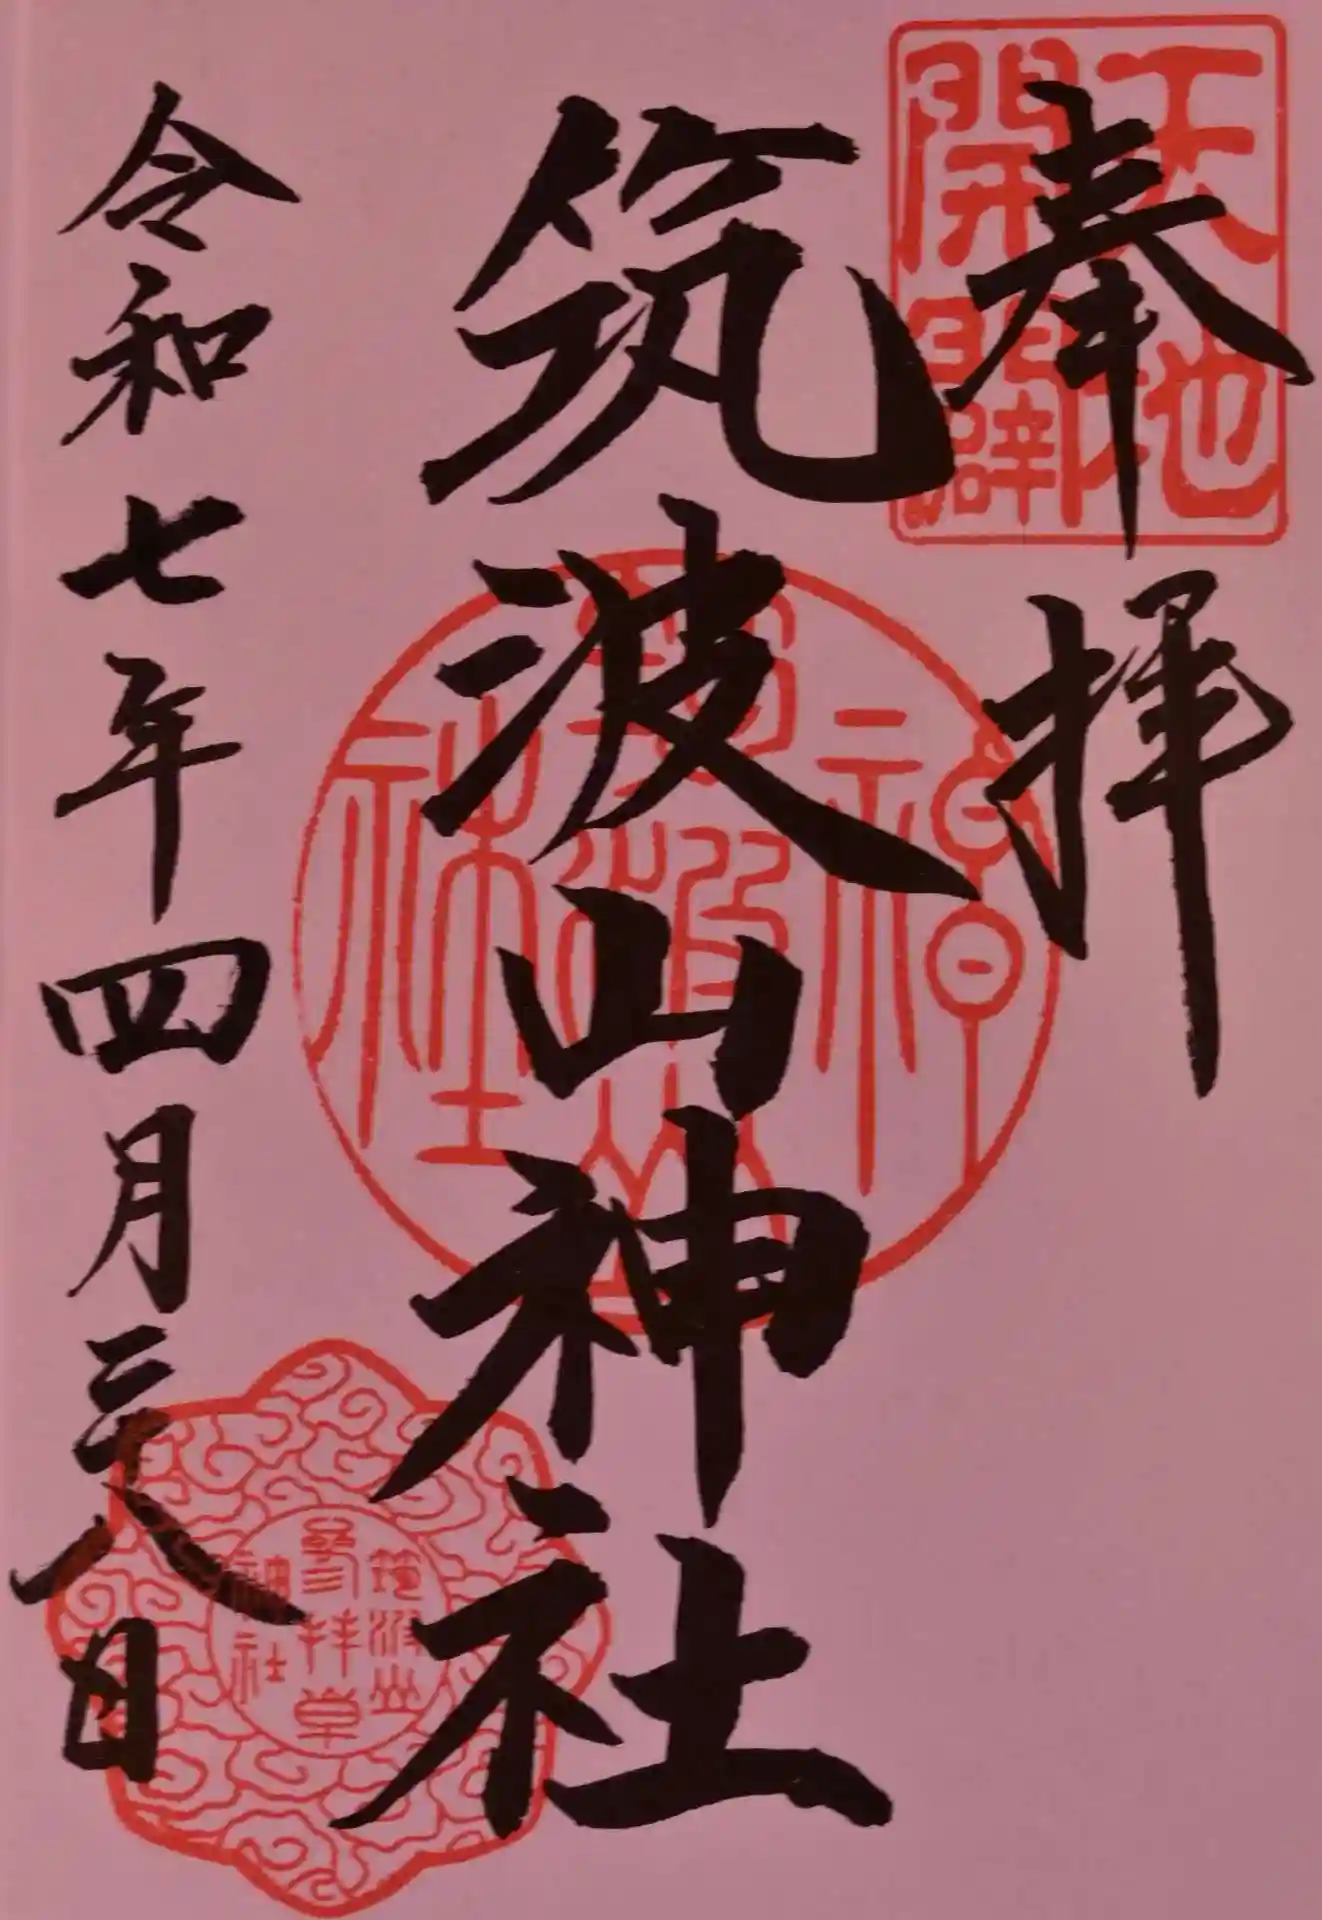 天地
開闢
奉拝
筑波山神社
令和七年四月二十八日
筑波山
参拝章
神社